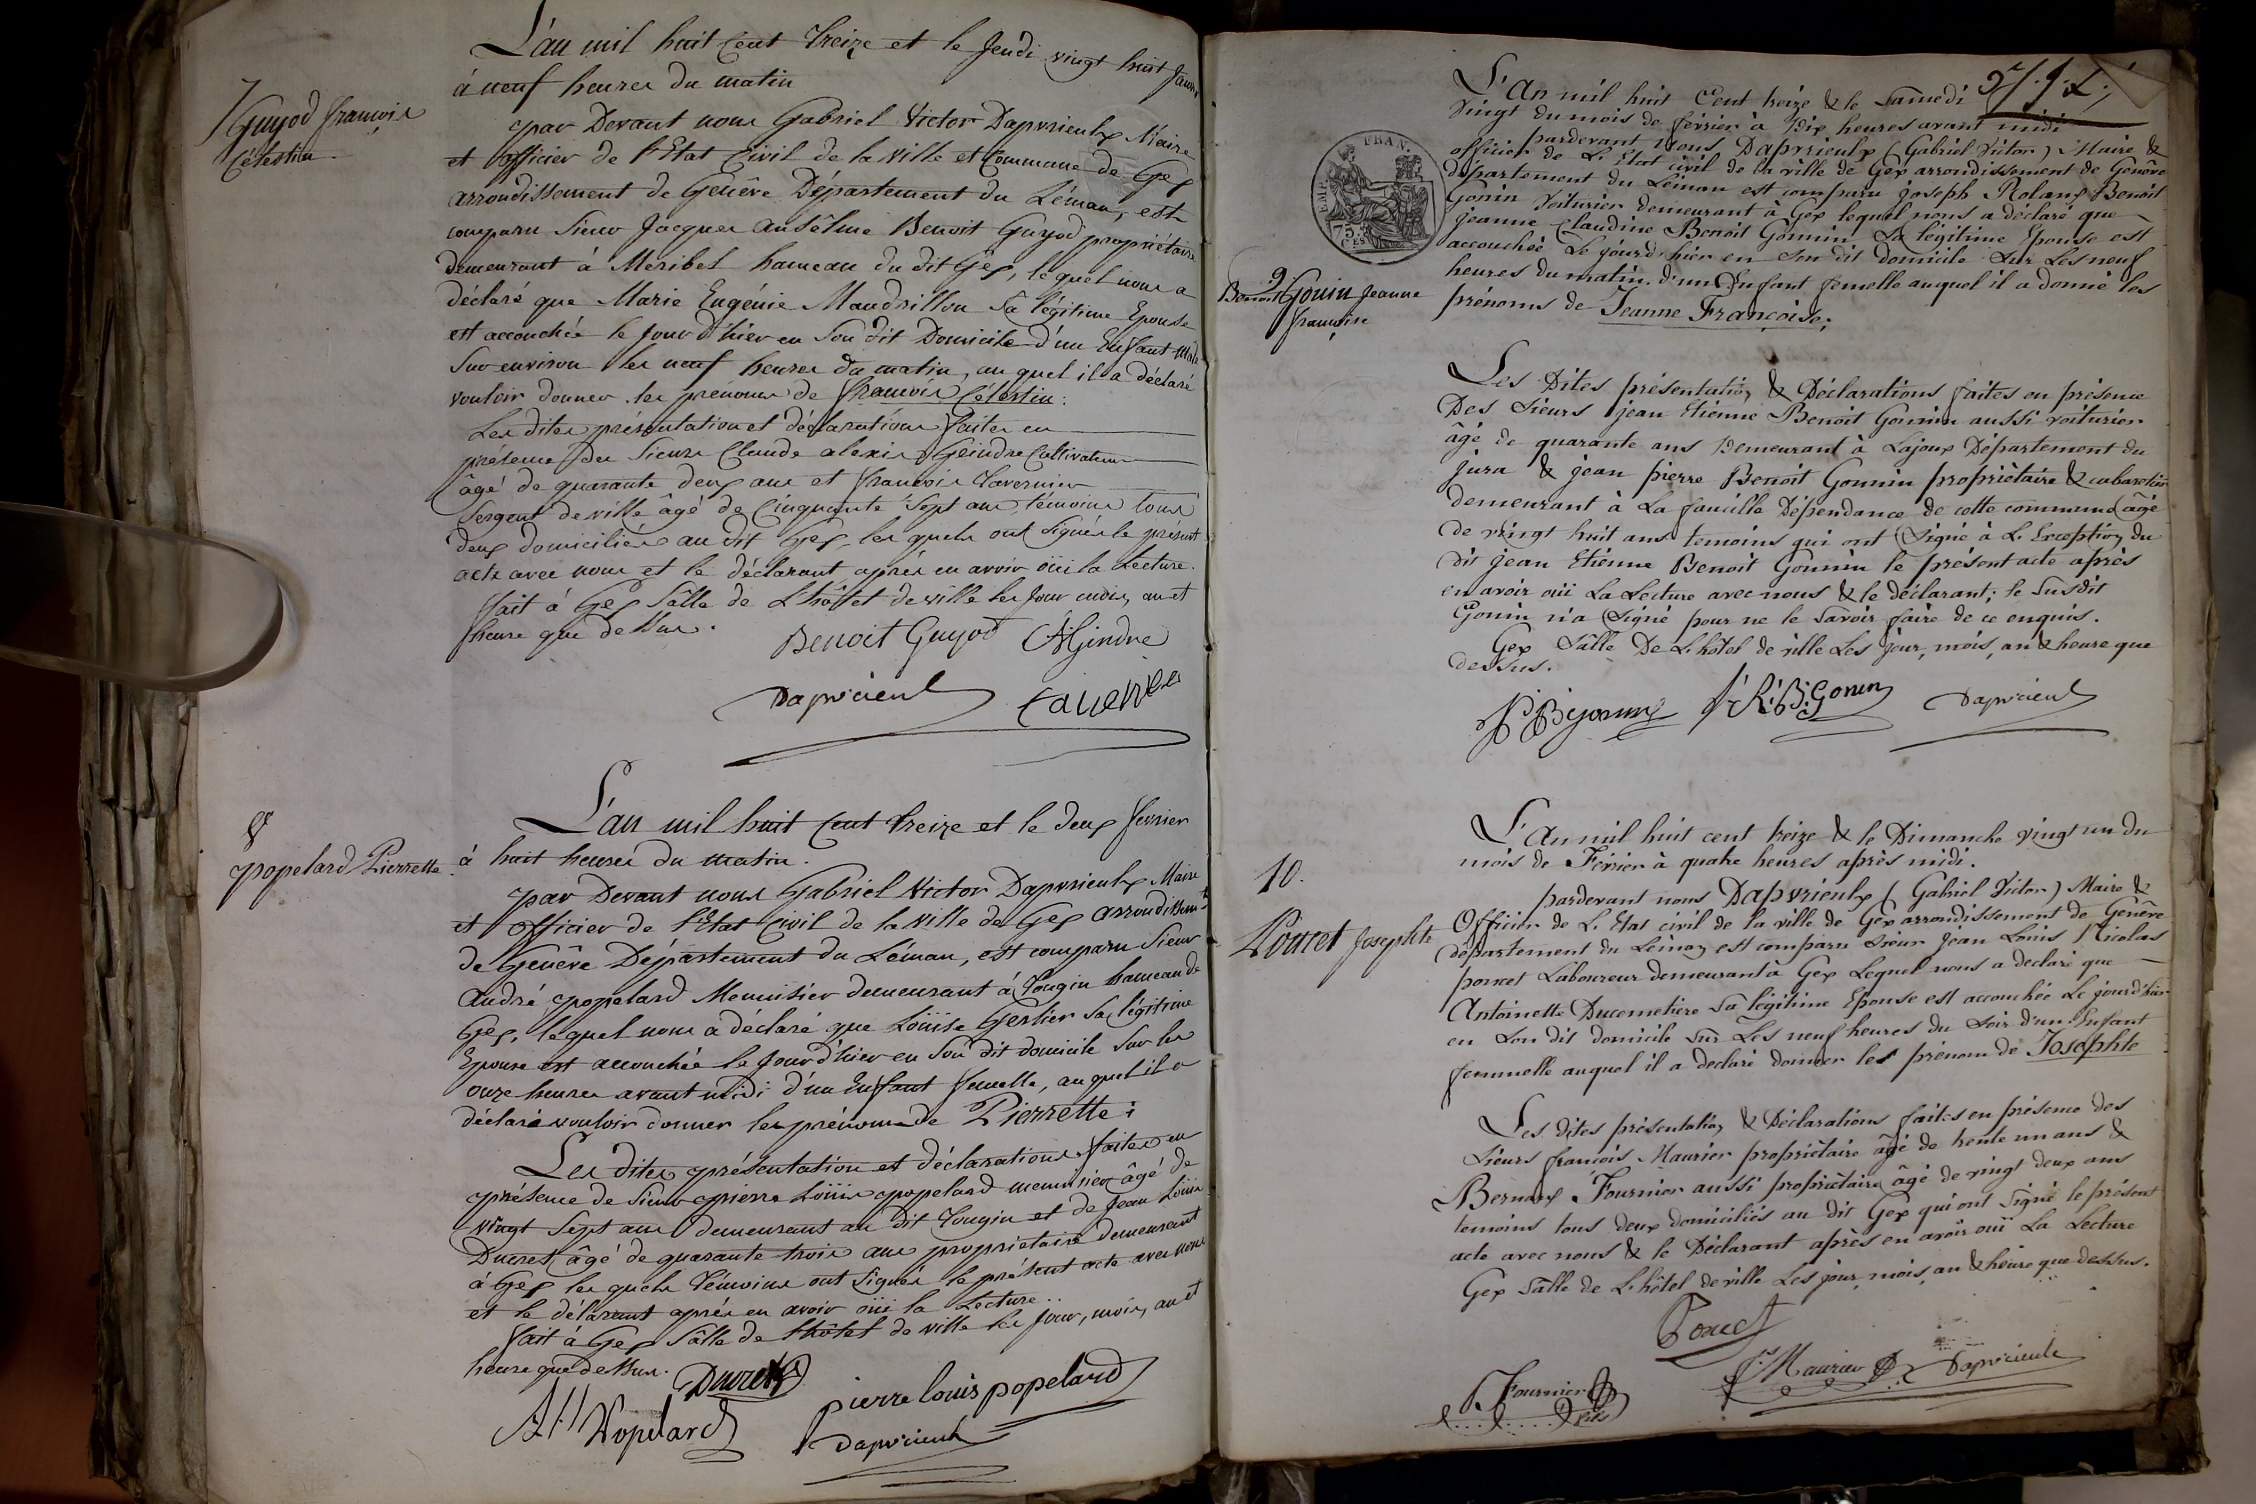 7
Guyod françois
Célestin
L'an mil huit Cent Treize et le Jeudi vingt huit Janv
à neuf heures du matin
par Devant nous Gabriel Victor Daprsieulx Maire
et officier de l'Etat Civil de la ville et Commune de Gex
arrondissement de Genêve Département du Léman, est
comparu Sieur Jacques anselme Benoit Guyod propriétaire
demeurant à Meribel hameau du dit Gex, lequel nous a
déclaré que Marie Eugénie Maudrillon Sa légitime Epouse
est accouchée le Jour d'hier en Son dit Domicile d'un Enfant mâle
Sur environ les neuf heures du matin, au quel il a déclaré
vouloir donner les prénoms de françois Célestin :
Les dites présentation et déclarations faites en
présence des Sieurs Claude alexis Geindre Cultivateur
âgé de quarante deux ans et françois Tavernier
Sergent de ville âgé de Cinquante Sept ans, témoins tous
deux domiciliés au dit Gex, les quels ont Signés le présent
acte avec nous et le déclarant après en avoir oüi la Lecture.
fait à Gex Sâlle de L'hôtel de ville les Jour mois, an et
heure que dessus.
Benoit Guyod CAGindre
Daprsieulx Tavernier
8
popelard Pierrette
L'an mil huit Cent Treize et le deux fevrier
à huit heures du matin.
par Devant nous Gabriel Victor Daprsieulx Maire
et officier de l'Etat Civil de la ville de Gex arrondissemt
de Genêve Département du Léman, est comparu Sieur
André popelard Menuisier demeurant à Tougin hameau de
Gex, lequel nous a déclaré que Loüise Gerlier Sa légitime
Epouse est accouchée le Jour d'hier en Son dit domicile Sur les
onze heures avant midi d'un Enfant femelle, au quel il a
déclaré vouloir donner les prénoms de Pierrette :
Les dites présentation et déclarations faites en
présence de Sieur pierre Loüis popelard menuisier âgé de
vingt Sept ans demeurant au dit Tougin et de Jean Loüis
Ducret âgé de quarante trois ans propriétaire demeurant
à Gex les quels Témoins ont Signés le présent acte avec nous
et le délarant après en avoir oüi la Lecture..
fait à Gex Sâlle de l'hôtel de ville les Jour, mois, an et
heure que dessus.
Ducret
pierre louis popelard
Popelard
Daprsieulx
EMP. FRAN.
75 C.ES
9
Benoit Gonin Jeanne
françoise
L'An mil huit Cent treize & le Samedi
vingt du mois de février à dix heures avant midi
pardevant nous Daprsieulx (Gabriel Victor) Maire &
officier de L'Etat civil de la ville de Gex arrondissement de Genêve
département du Léman est comparu joseph Roland Benoit
Gonin Voiturier demeurant à Gex lequel nous a déclaré que
jeanne Claudine Benoit Gonnin Sa légitime Epouse est
accouchée Le jourd'hier en son dit domicile Sur Les neuf
heures du matin d'un Enfant femelle auquel il a donné les
prénoms de Jeanne Françoise;
Les Dites présentation & Déclarations faites en présence
Des Sieurs jean Etienne Benoit Gonnin aussi voiturier
âgé de quarante ans Demeurant à Lajoux Département du
jura & jean pierre Benoit Gonnin propriétaire & cabaretier
demeurant à La faucille Dépendance de cette commune âgé
de vingt huit ans témoins qui ont Signé à L'Exception du
dit jean Etienne Benoit Gonnin le présent acte après
en avoir oüi La Lecture avec nous & le déclarant; le Susdit
Gonin n'a Signé pour ne le Savoir faire de ce enquis.
Gex Salle De L'hôtel de ville Les jour, mois, an & heure que
dessus.
JPBGonin J:R:B:Gonin Daprsieulx
10.
Poncet Josephte
L'An mil huit cent treize & le Dimanche vingt un du
mois de Février à quatre heures après midi.
pardevant nous Daprsieulx (Gabriel Victor) Maire &
Officier de L'Etat civil de la ville de Gex arrondissement de Genêve
département du Léman est comparu Sieur Jean Louis Nicolas
poncet Laboureur demeurant à Gex Lequel nous a declaré que
Antoinette Ducemetiere Sa légitime Epouse est accouchée Le jourd'hier
en Son dit domicile Sur Les neuf heures du Soir d'un Enfant
femmelle auquel il a declaré donner les prénom de Josephte
Les dites présentation & Déclarations faites en présence des
Sieurs françois Maurier propriétaire âgé de trente un ans &
Bernard Fournier aussi propriétaire âgé de vingt deux ans
temoins tous deux domiciliés au dit Gex qui ont Signé le présent
acte avec nous & le Déclarant après en avoir ouï La Lecture
Gex Salle de L'hôtel de ville Les jour, mois, an & heure que dessus.
Poncet
Fournier fils
fs Maurier Daprsieulx